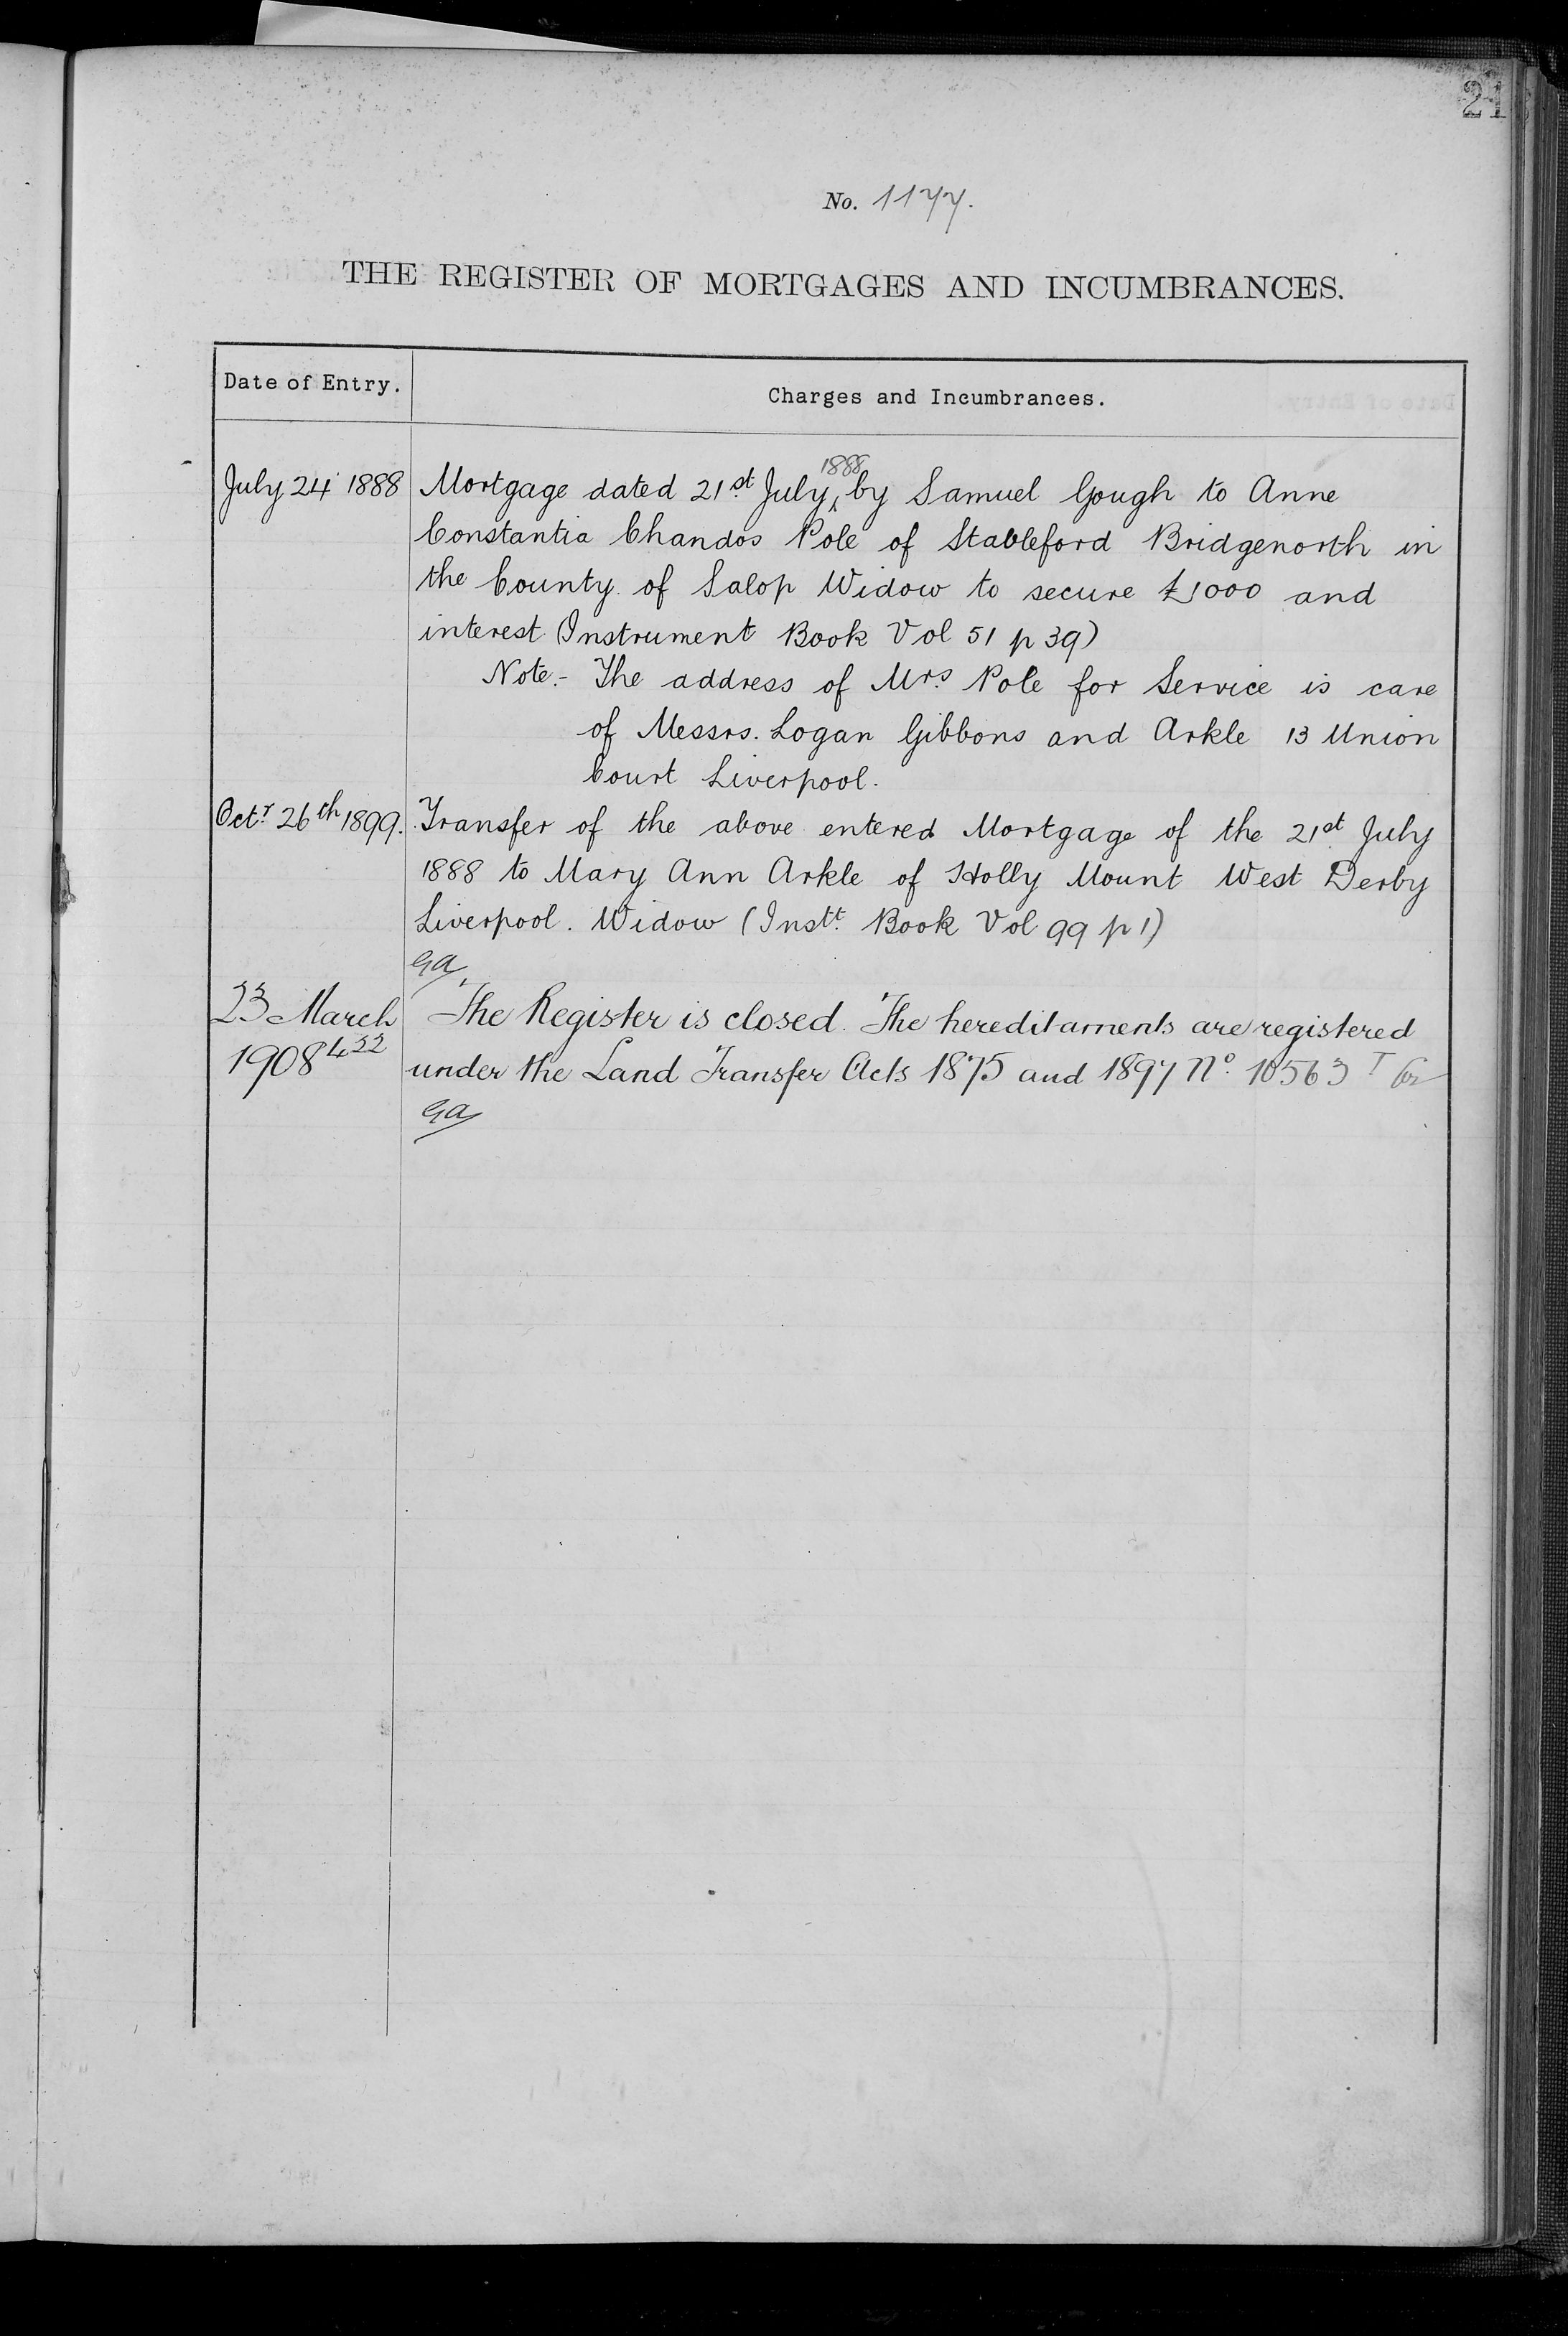 21
No. 1177.
THE REGISTER OF MORTGAGES AND INCUMBRANCES.
Date of Entry.
Charges and Incumbrances.
July 24 1888
Mortgage dated 21st July 1888 by Samuel Gough to Anne
Constantia Chandos Pole of Stableford Bridgenorth in
the County of Salop Widow to secure £1000 and
interest (Instrument Book Vol 51 p 39)
Note.- The address of Mrs. Pole for Service is care
of Messrs. Logan Gibbons and Arkle 13 Union
Court Liverpool.
Octr 26th 1899.
Transfer of the above entered Mortgage of the 21st July
1888 to Mary Ann Arkle of Holly Mount West Derby
Liverpool. Widow (Instt. Book Vol 99 p 1)
23 March
1908
The Register is closed. The hereditaments are registered
under the Land Transfer Acts 1875 and 1897 No. 10563